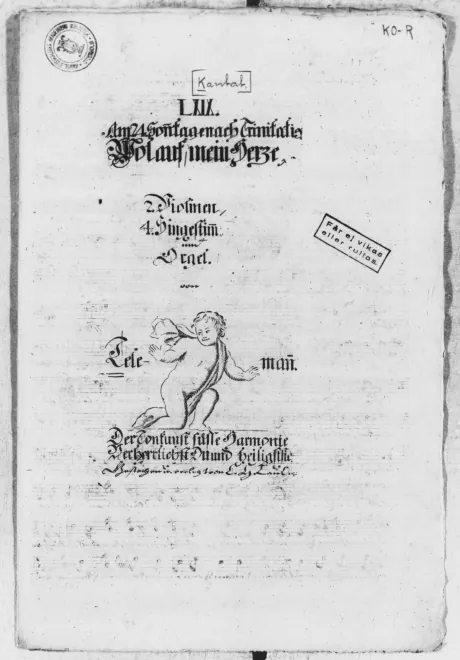 KO-R
[Kantat.]
Am 24 Sontage nach Trinitatis
Wolauf, mein Herze,
2. Violinen,
4. Singestim̄.
und
Orgel.
von
Tele- man̄.
Får ej vikas
eller rullas.
Der Tonkunst süsse Harmonie
Verherrlichst Du und heiligst sie.